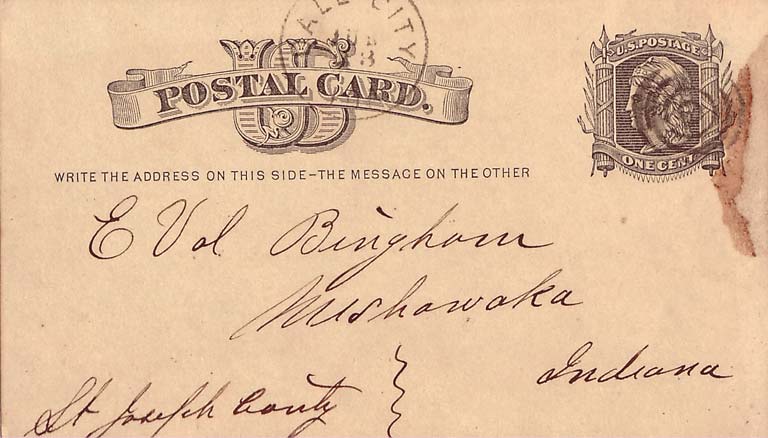 CITY
U.S. POSTAGE
US
POSTAL CARD.
ONE CENT
WRITE THE ADDRESS ON THIS SIDE–THE MESSAGE ON THE OTHER
E Vol Bingham
Mishawaka
Indiana
St Joseph Conty